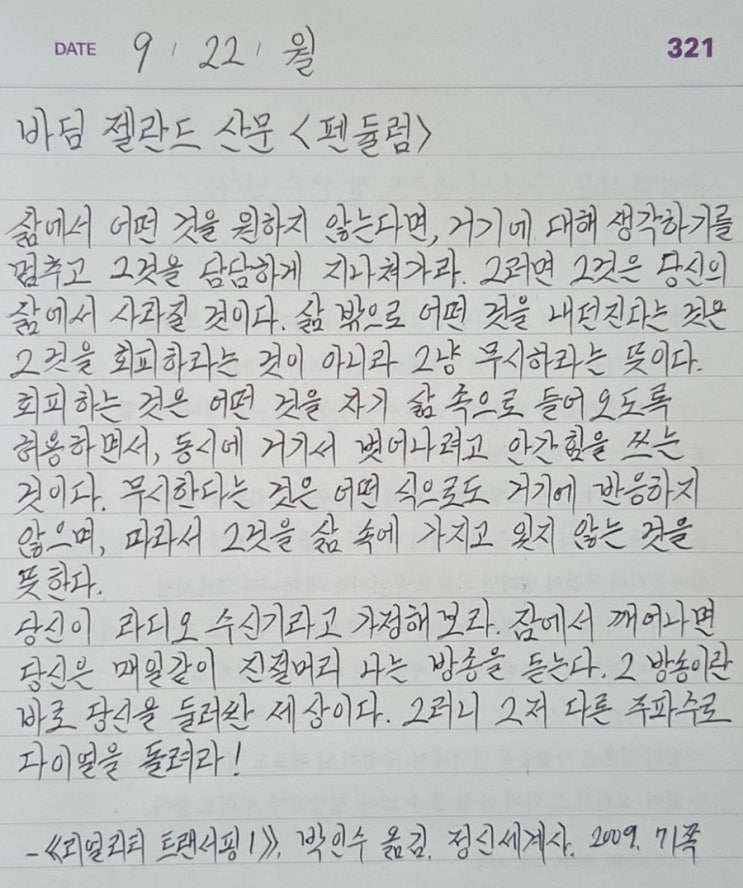 DATE 9 / 22 / 월 321
바딤 젤란드 산문 <펜듈럼>
삶에서 어떤 것을 원하지 않는다면, 거기에 대해 생각하기를
멈추고 그것을 담담하게 지나쳐가라. 그러면 그것은 당신의
삶에서 사라질 것이다. 삶 밖으로 어떤 것을 내던진다는 것은
그것을 회피하라는 것이 아니라 그냥 무시하라는 뜻이다.
회피하는 것은 어떤 것을 자기 삶 속으로 들어오도록
허용하면서, 동시에 거기서 벗어나려고 안간힘을 쓰는
것이다. 무시한다는 것은 어떤 식으로도 거기에 반응하지
않으며, 따라서 그것을 삶 속에 가지고 있지 않는 것을
뜻한다.
당신이 라디오 수신기라고 가정해보라. 잠에서 깨어나면
당신은 매일같이 진절머리 나는 방송을 듣는다. 그 방송이란
바로 당신을 둘러싼 세상이다. 그러니 그저 다른 주파수로
다이얼을 돌려라!
-《리얼리티 트랜서핑 1》, 박인수 옮김. 정신세계사. 2009. 71쪽